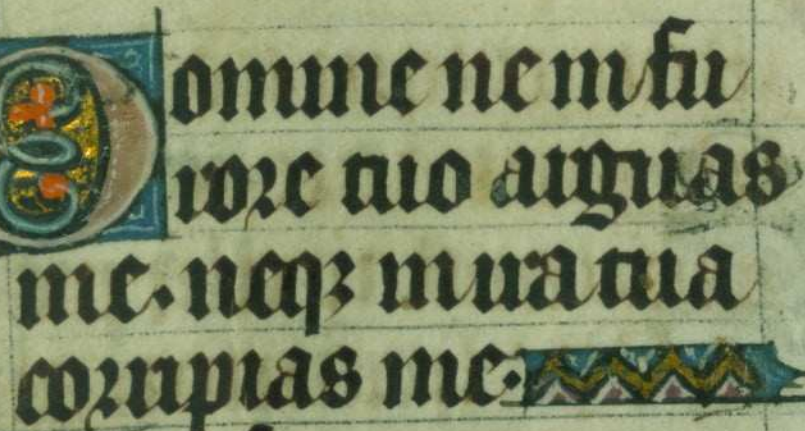 Domine ne in fu
rore tuo arguas
me. neqz in ira tua
corripias me.